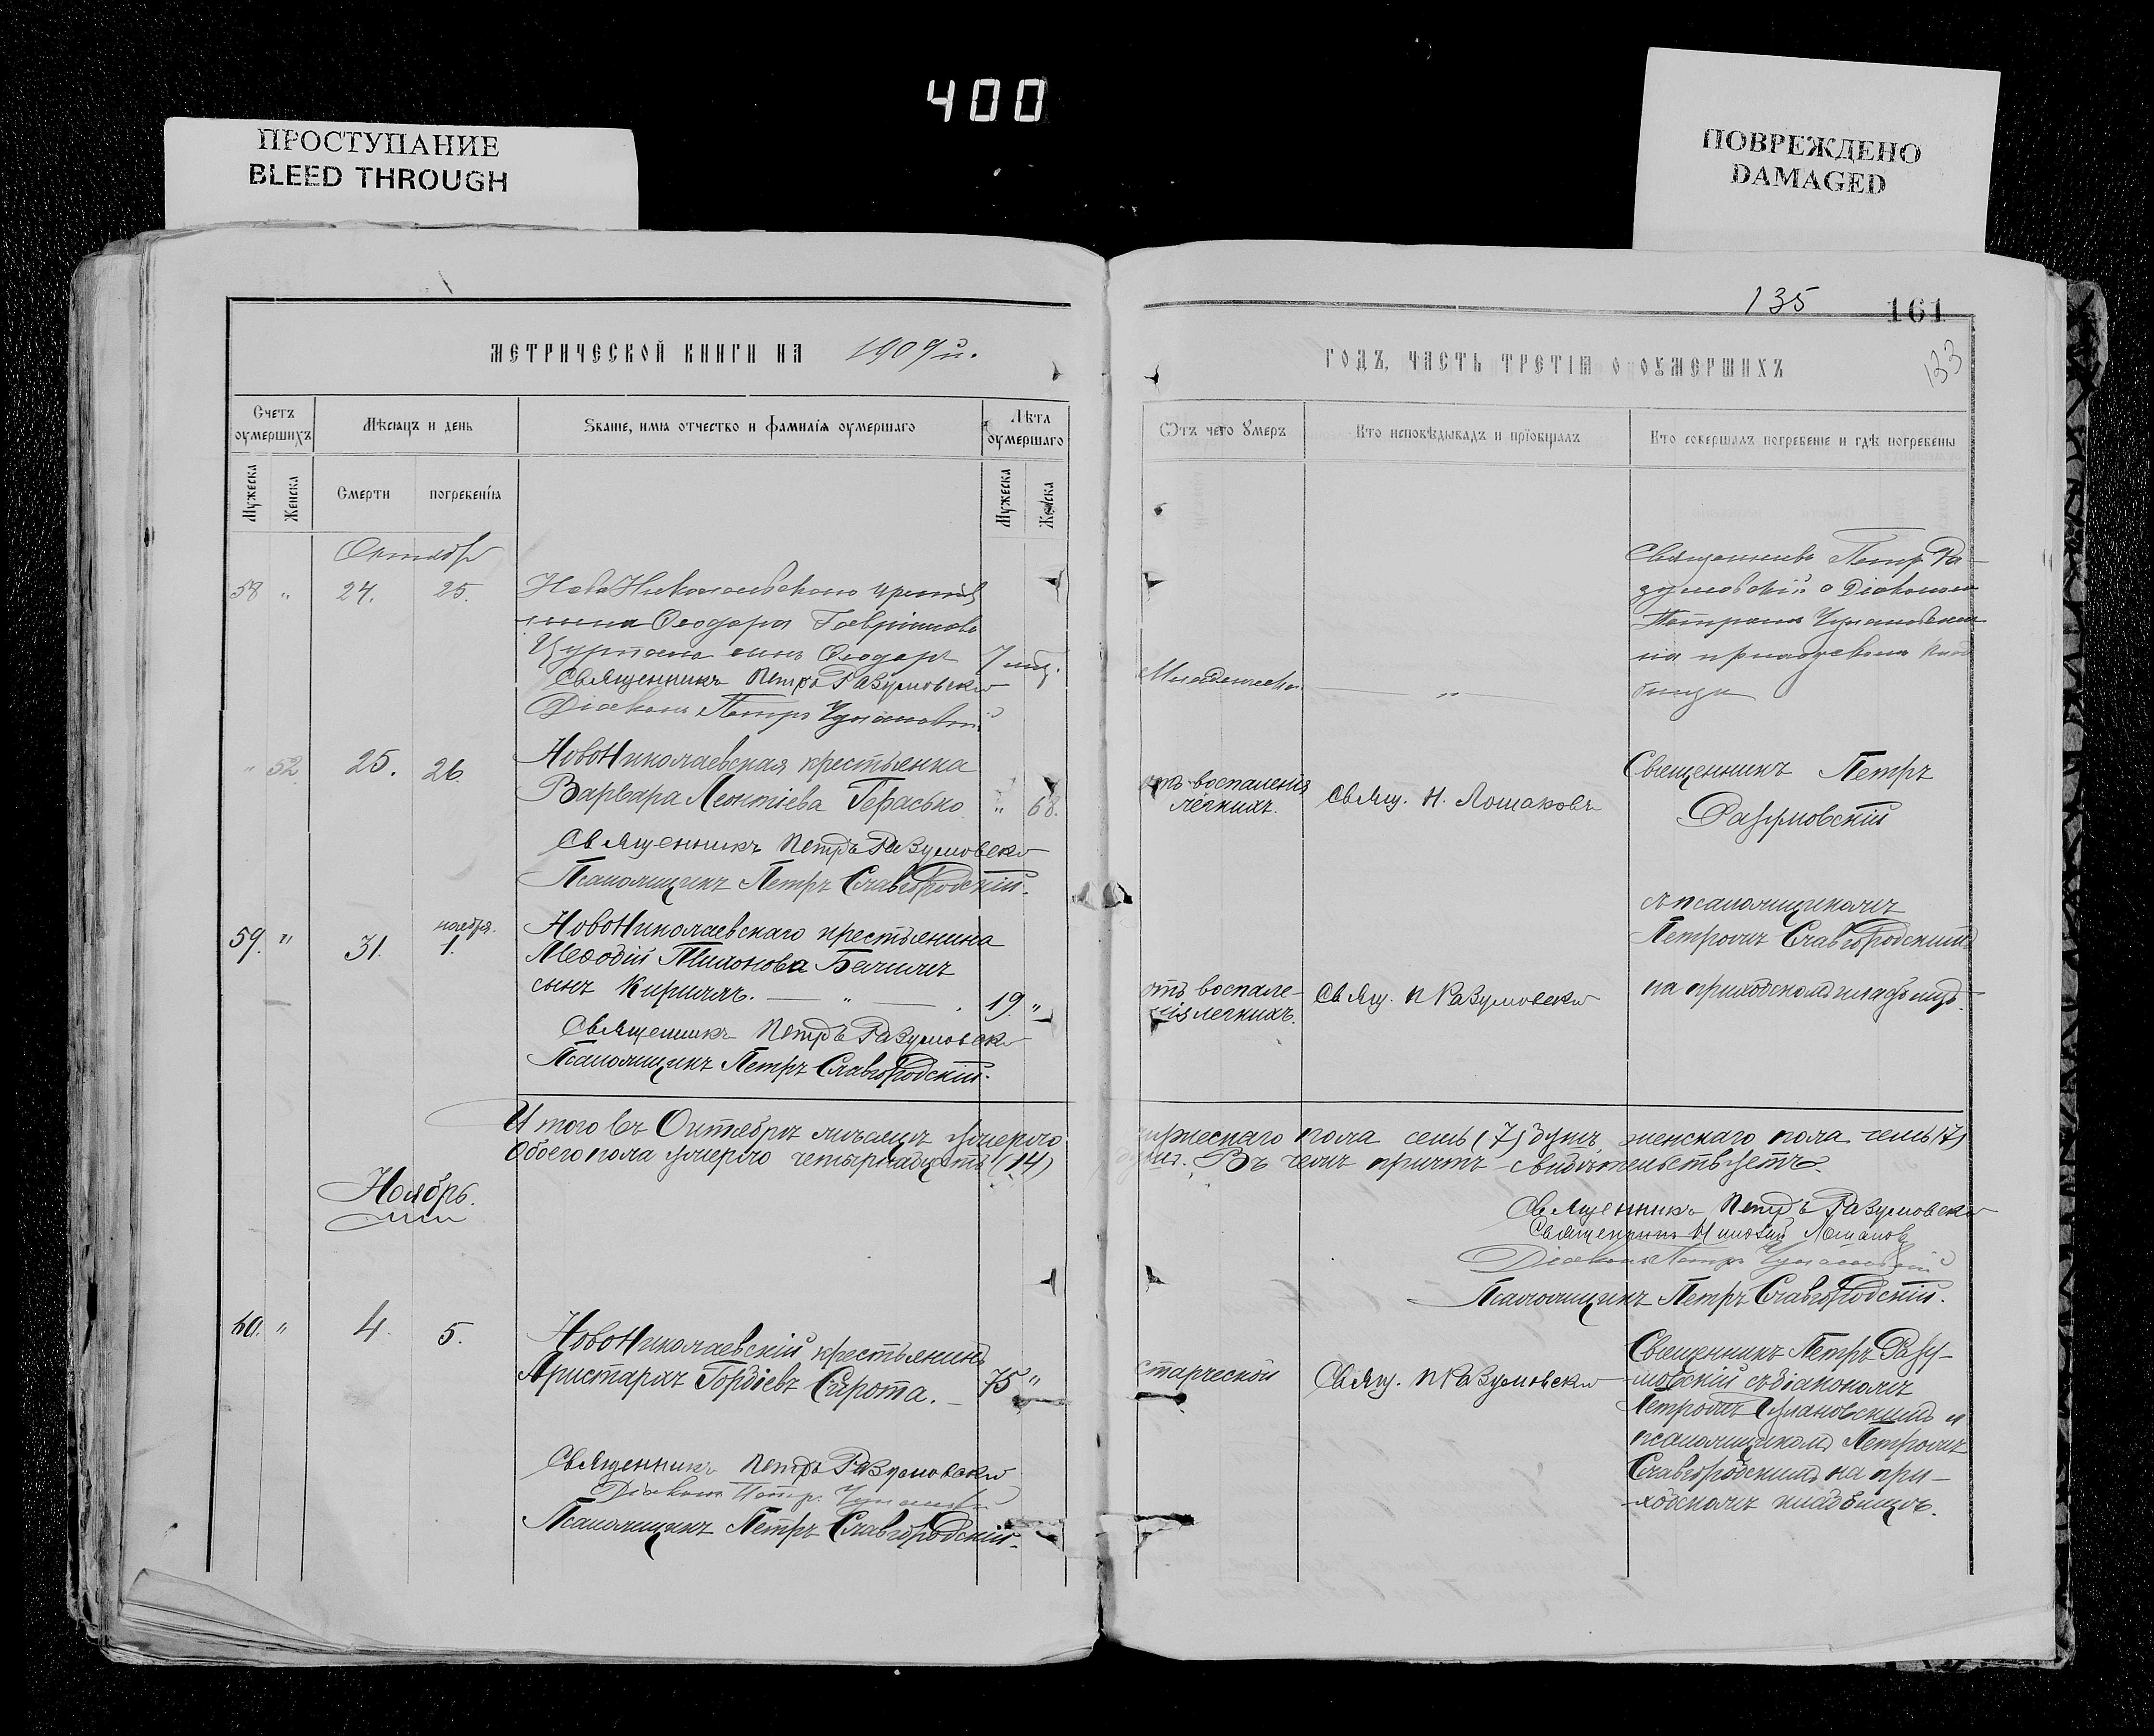 400
ПРОСТУПАНИЕ
BLEED THROUGH
ПОВРЕЖДЕНО
DAMAGED
135
161
133
МЕТРИЧЕСКОЙ КНИГИ НА 1909й.
ГОДЪ, ЧАСТЬ ТРЕТІЯ О ОУМЕРШИХЪ
Счетъ оумершихъ
Мѣсяцъ и день
Званіе, имя отчество и фамилія оумершаго
Лѣта оумершаго
Ѿтъ чего умеръ
Кто исповѣдывалъ и пріобщалъ
Кто совершалъ погребеніе и гдѣ погребены
Мужеска
Женска
Смерти
погребенія
Мужеска
Женска
Октябрь
58 " 24. 25.
сынъ Ѳеодоръ 7
Священникъ Петръ Разумовскій
Діаконъ Петръ
Младенчества
— " —
Священникъ Петръ Ра-
зумовскій с Діакономъ
Петромъ
на приходскомъ клад
бищѣ
" 52 25. 26
НовоНиколаевская крестьянка
Варвара Леонтіева Герасько " 68.
Священникъ Петръ Разумовскій
Псаломщикъ Петръ Славгородскій.
отъ воспаленія
легкихъ.
Свящ. Н. Лошаковъ
Священникъ Петръ
Разумовскій
съ псаломщикомъ
Петромъ Славгородскимъ
на приходскомъ кладбищѣ.
59. " 31. ноября. 1.
НовоНиколаевскаго крестьянина
Меѳодій
сынъ Кириллъ. — " — 19. "
Священникъ Петръ Разумовскій
Псаломщикъ Петръ Славгородскій.
отъ воспале-
нія легкихъ.
Свящ. П Разумовскій
Итого въ Октябрѣ мѣсяцѣ умерло
мужескаго пола семь (7) душъ, женскаго пола семь (7)
Обоего пола умерло четырнадцать (14)
душъ. Въ чемъ причтъ свидѣтельствуетъ.
Священникъ Петръ Разумовскій
Священникъ Николай Лошаковъ
Діаконъ Петръ
Псаломщикъ Петръ Славгородскій.
Ноябрь.
60. " 4. 5.
НовоНиколаевскій крестьянинъ
Аристархъ Гордіевъ Сирота. — 75 "
Священникъ Петръ Разумовскій
Діаконъ Петръ
Псаломщикъ Петръ Славгородскій.
старческой
Свящ. П Разумовскій
Священникъ Петръ Разу-
мовскій съ діакономъ
Петромъ и
псаломщикомъ Петромъ
Славгородскимъ на при-
ходскомъ кладбищѣ.